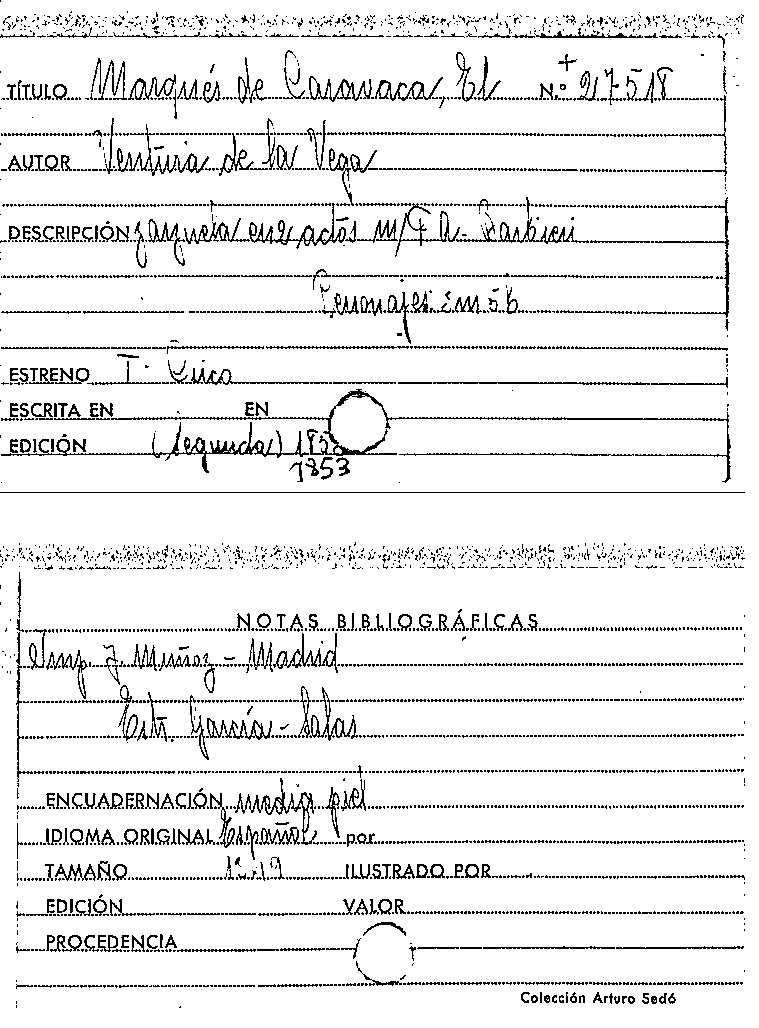 TÍTULO Marqués de Caravaca, El N.º + 27518
AUTOR Ventura de la Vega
DESCRIPCIÓN zarzuela en 2 actos m/ F A. Barbieri
Personajes: 2m 5h
ESTRENO T. Circo
ESCRITA EN EN
EDICIÓN (Segunda) 1853
1853
NOTAS BIBLIOGRÁFICAS
Imp. J. Muñoz - Madrid
Estr. García - Salas
ENCUADERNACIÓN media piel
IDIOMA ORIGINAL Español por
TAMAÑO 12.19 ILUSTRADO POR
EDICIÓN VALOR
PROCEDENCIA
Colección Arturo Sedó